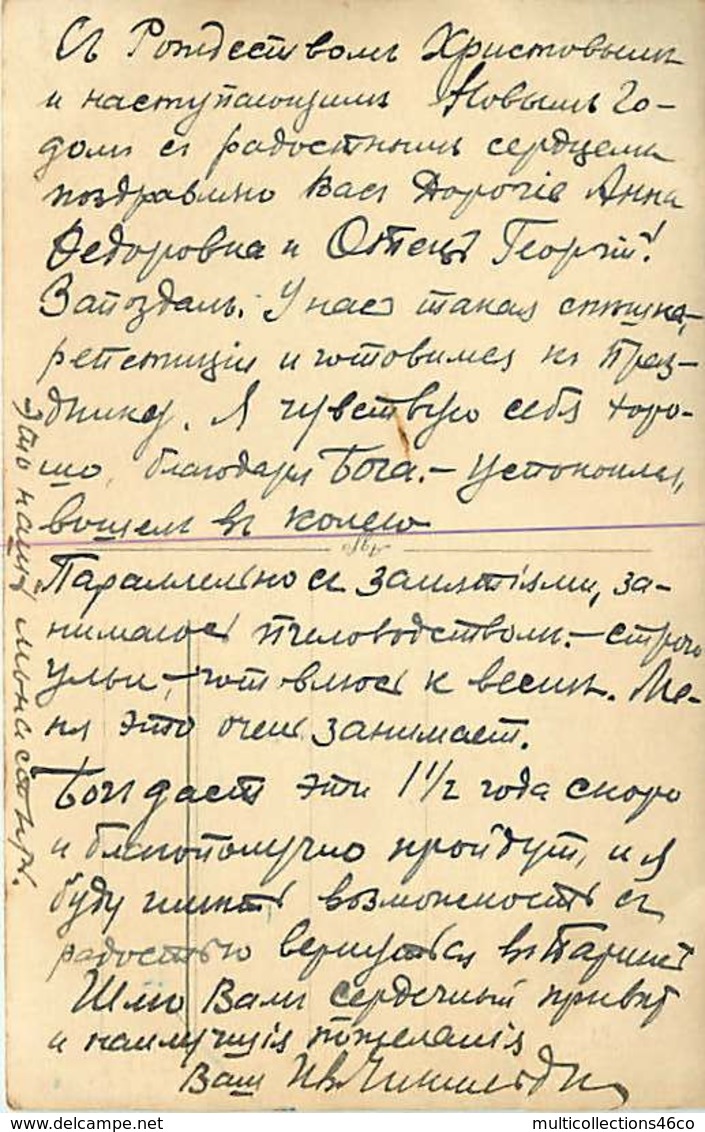 Съ Рождествомъ Христовымъ
и наступающимъ Новымъ Го-
домъ съ радостнымъ сердцемъ
поздравляю Васъ Дорогіе Анна
Федоровна и Отецъ Георгій!
Запоздалъ. У насъ такая спѣшка,
репетиціи и готовимся къ Праз-
днику. Я чувствую себя хоро-
шо, благодаря Бога. – Успокоился,
вошелъ въ колею
Параллельно съ занятіями, за-
нимаюсь пчеловодствомъ. – строю
ульи, – готовлюсь к веснѣ. Ме-
ня это очень занимаетъ.
Богъ дастъ эти 1 1/2 года скоро
и благополучно пройдутъ, и я
буду имѣть возможность съ
радостью вернуться въ Парижъ
Шлю Вамъ сердечный привѣт
и наилучшія пожеланія
Ваш Ив.
это нашъ монастырь.
multicollections46co